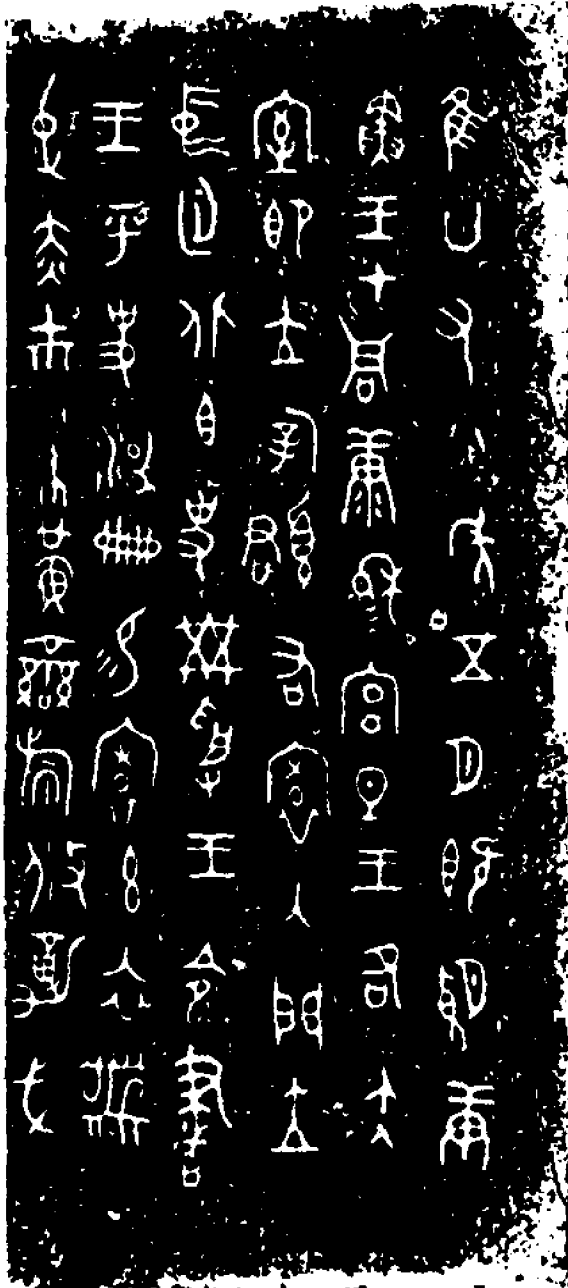 隹廿又八年五月既望庚
寅王才周康穆宮旦王各大
室即立宰頵右寰入門立
中廷北鄉史黹受王令書
王乎史淢冊易寰玄衣黹
屯赤巿朱黃䜌旂攸勒戈